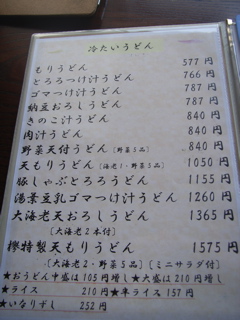 冷たいうどん
もりうどん 577円
とろろつけ汁うどん 766円
ゴマつけ汁うどん 787円
納豆おろしうどん 787円
きのこ汁うどん 840円
肉汁うどん 840円
野菜天付うどん [野菜5品] 840円
天もりうどん [海老1・野菜5品] 1050円
豚しゃぶとろろうどん 1155円
湯葉豆乳ゴマつけ汁うどん 1260円
大海老天おろしうどん 1365円
[大海老2本付]
欅特製天もりうどん 1575円
[大海老2・野菜5品] [ミニサラダ付]
★おうどん中盛は105円増し ★大盛は210円増し
★ライス 210円 ★半ライス157円
★いなりずし 252円